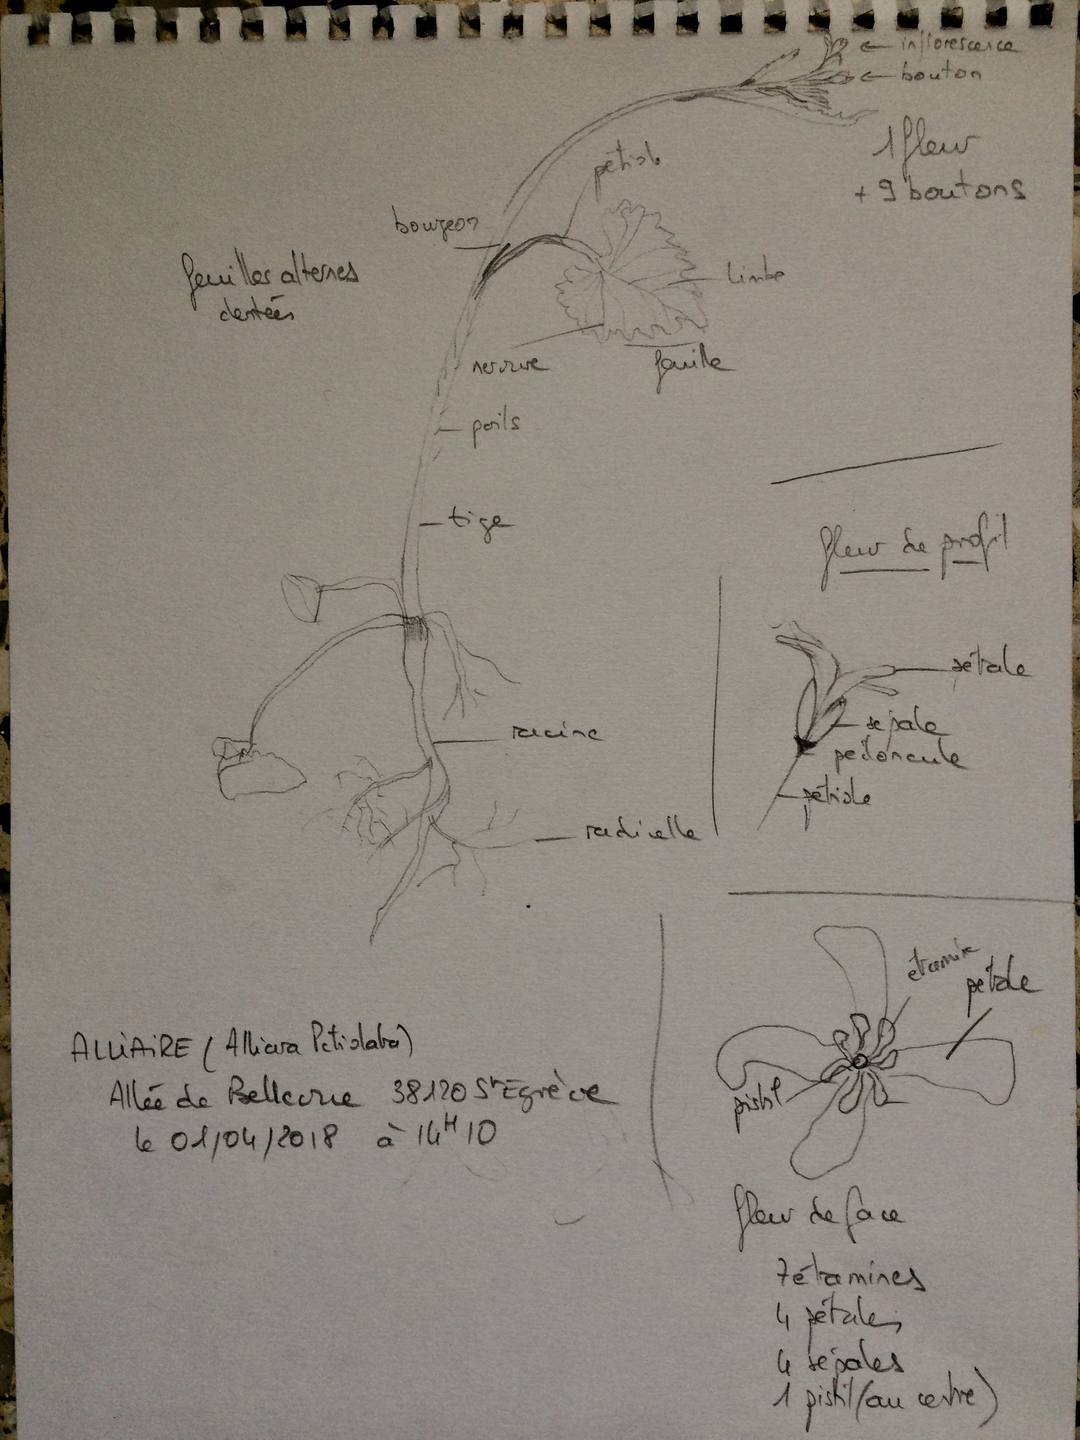 inflorescence
bouton
1 fleur
+ 9 boutons
pétiole
bourgeon
feuilles alternes
dentées
limbe
nervure
feuille
poils
tige
fleur de profil
pétale
sépale
pedoncule
pétiole
racine
radicelle
étamine
pétale
pistil
ALLIAIRE (Alliara Petiolata)
Allée de Bellevue 38120 St Egrève
le 01/04/2018 à 14H10
fleur de face
7 étamines
4 pétales
4 sépales
1 pistil (au centre)